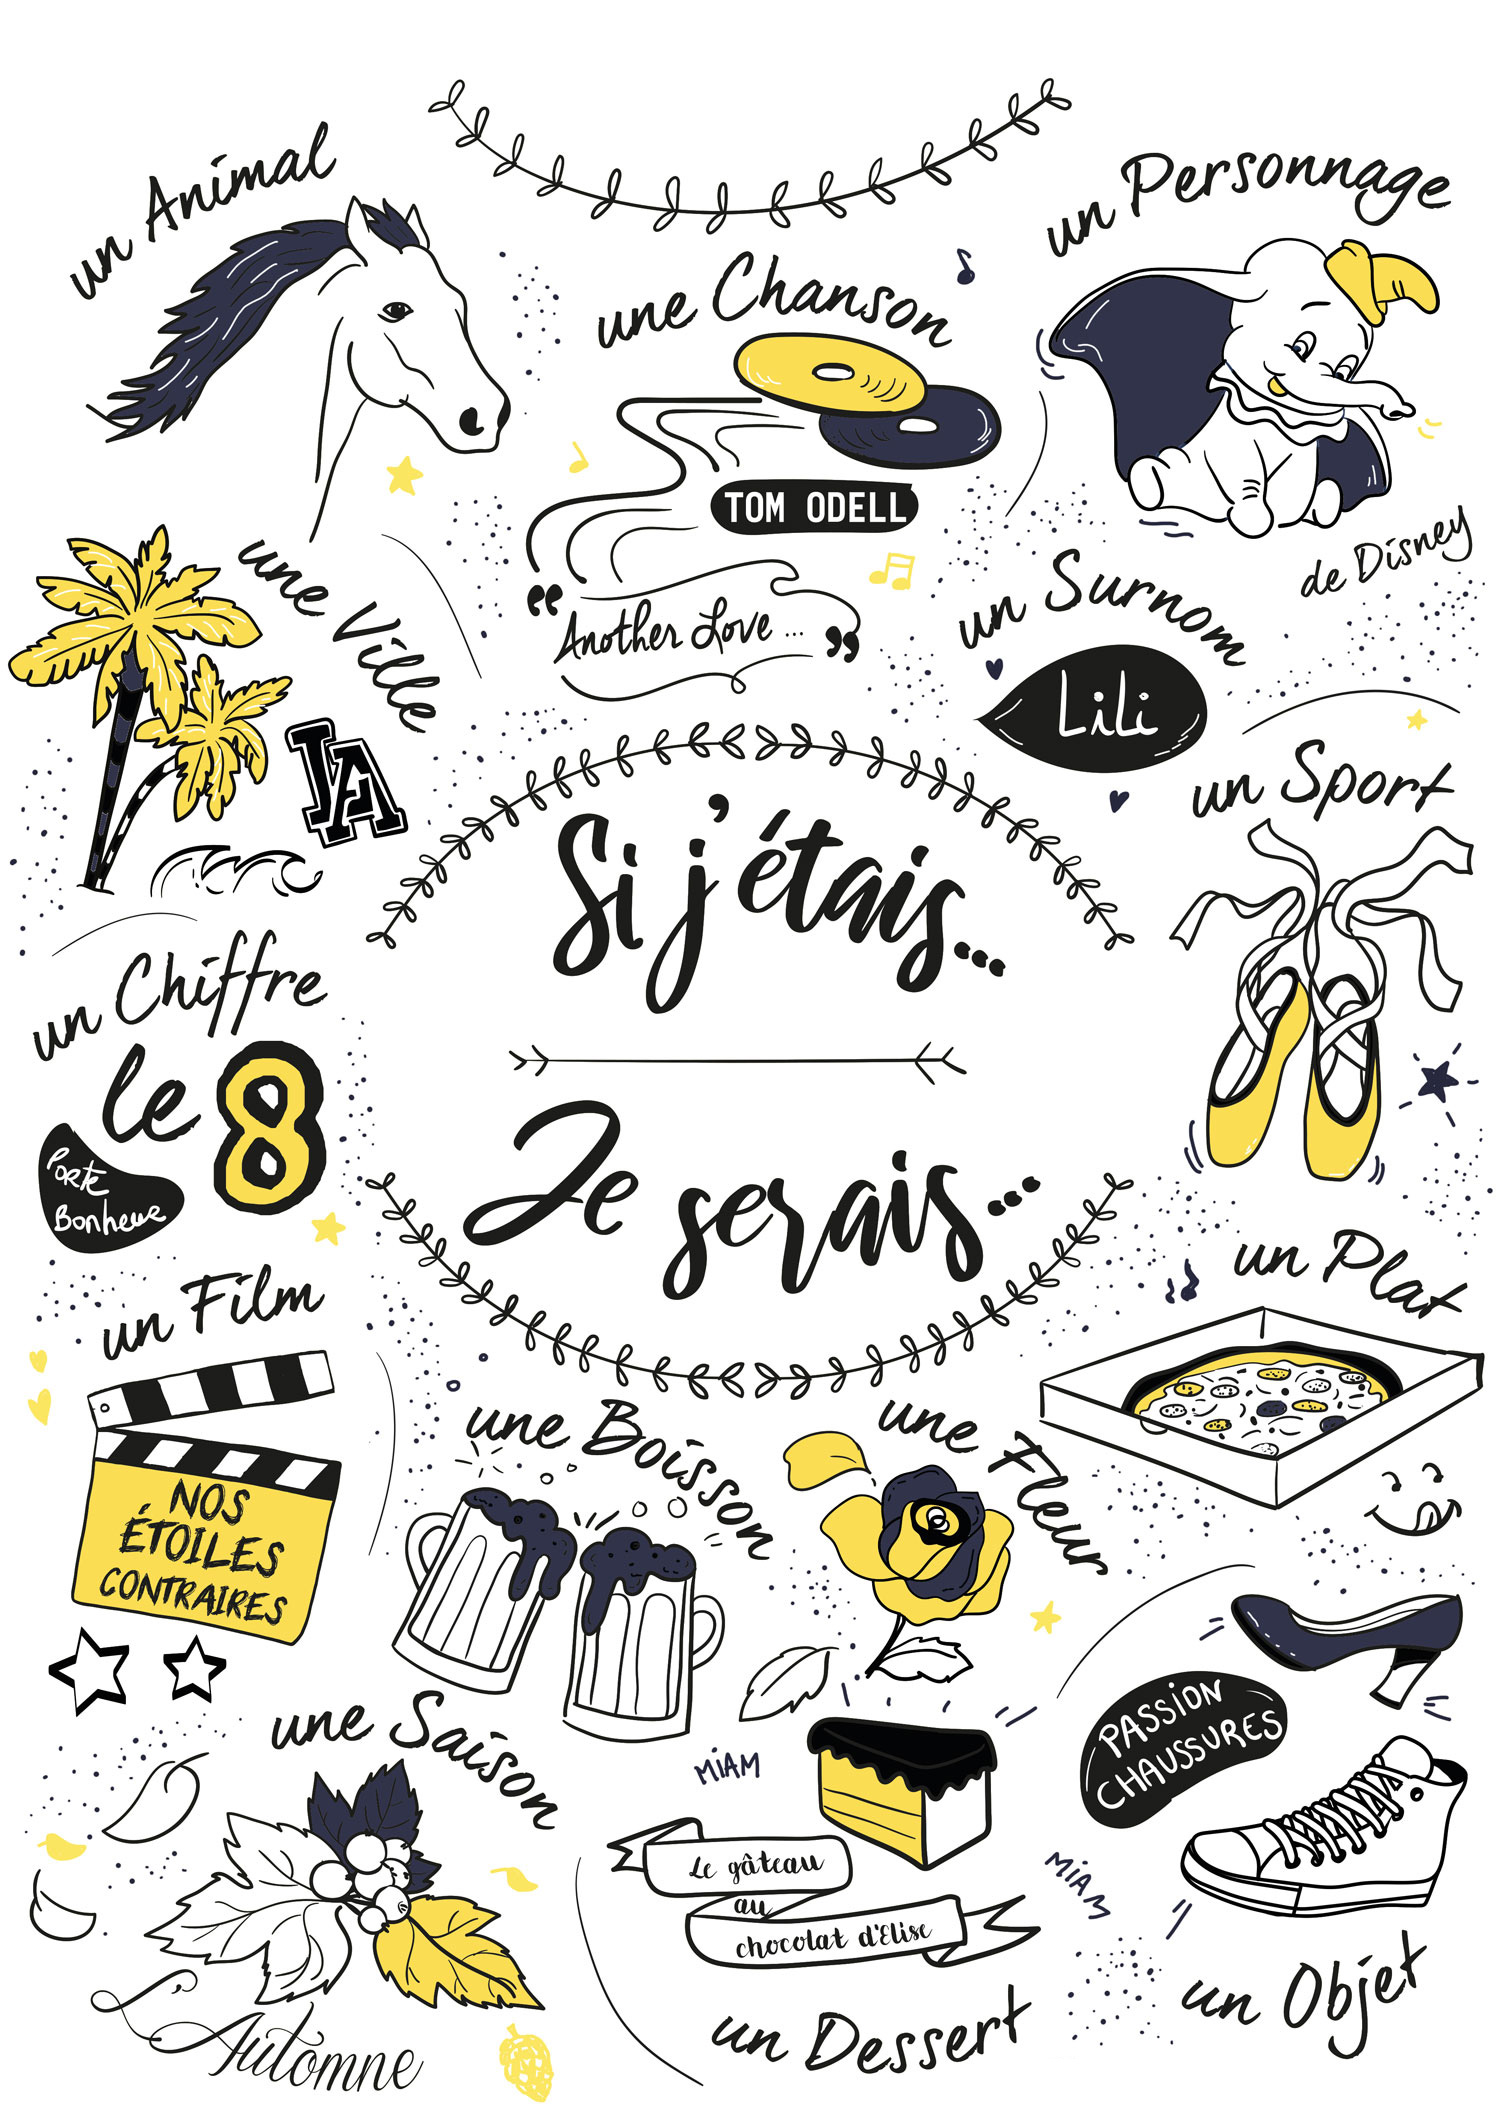 un Animal
une Chanson
TOM ODELL
“Another Love ...”
un Personnage
de Disney
une Ville
LA
un Surnom
LiLi
un Sport
Si j'étais...
Je serais...
un Chiffre
le 8
Porte
Bonheur
un Film
NOS
ÉTOILES
CONTRAIRES
une Boisson
une Fleur
un Plat
une Saison
L'Automne
MIAM
Le gâteau
au
chocolat d'Elise
un Dessert
PASSION
CHAUSSURES
MIAM
un Objet